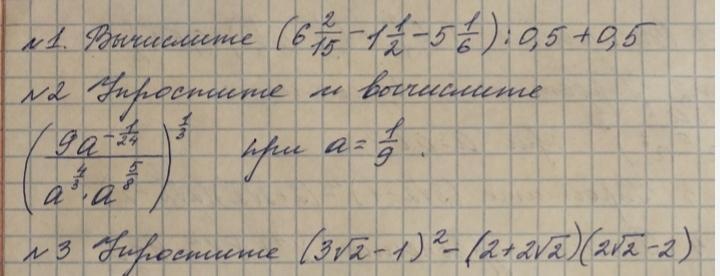 №1. Вычислите (6 2/15 - 1 1/2 - 5 1/6) : 0,5 + 0,5
№2 Упростите и вычислите
(9a^(-1/24) / (a^(4/3) · a^(5/8)))^(1/3) при a = 1/9.
№3 Упростите (3√2 - 1)² - (2 + 2√2)(2√2 - 2)